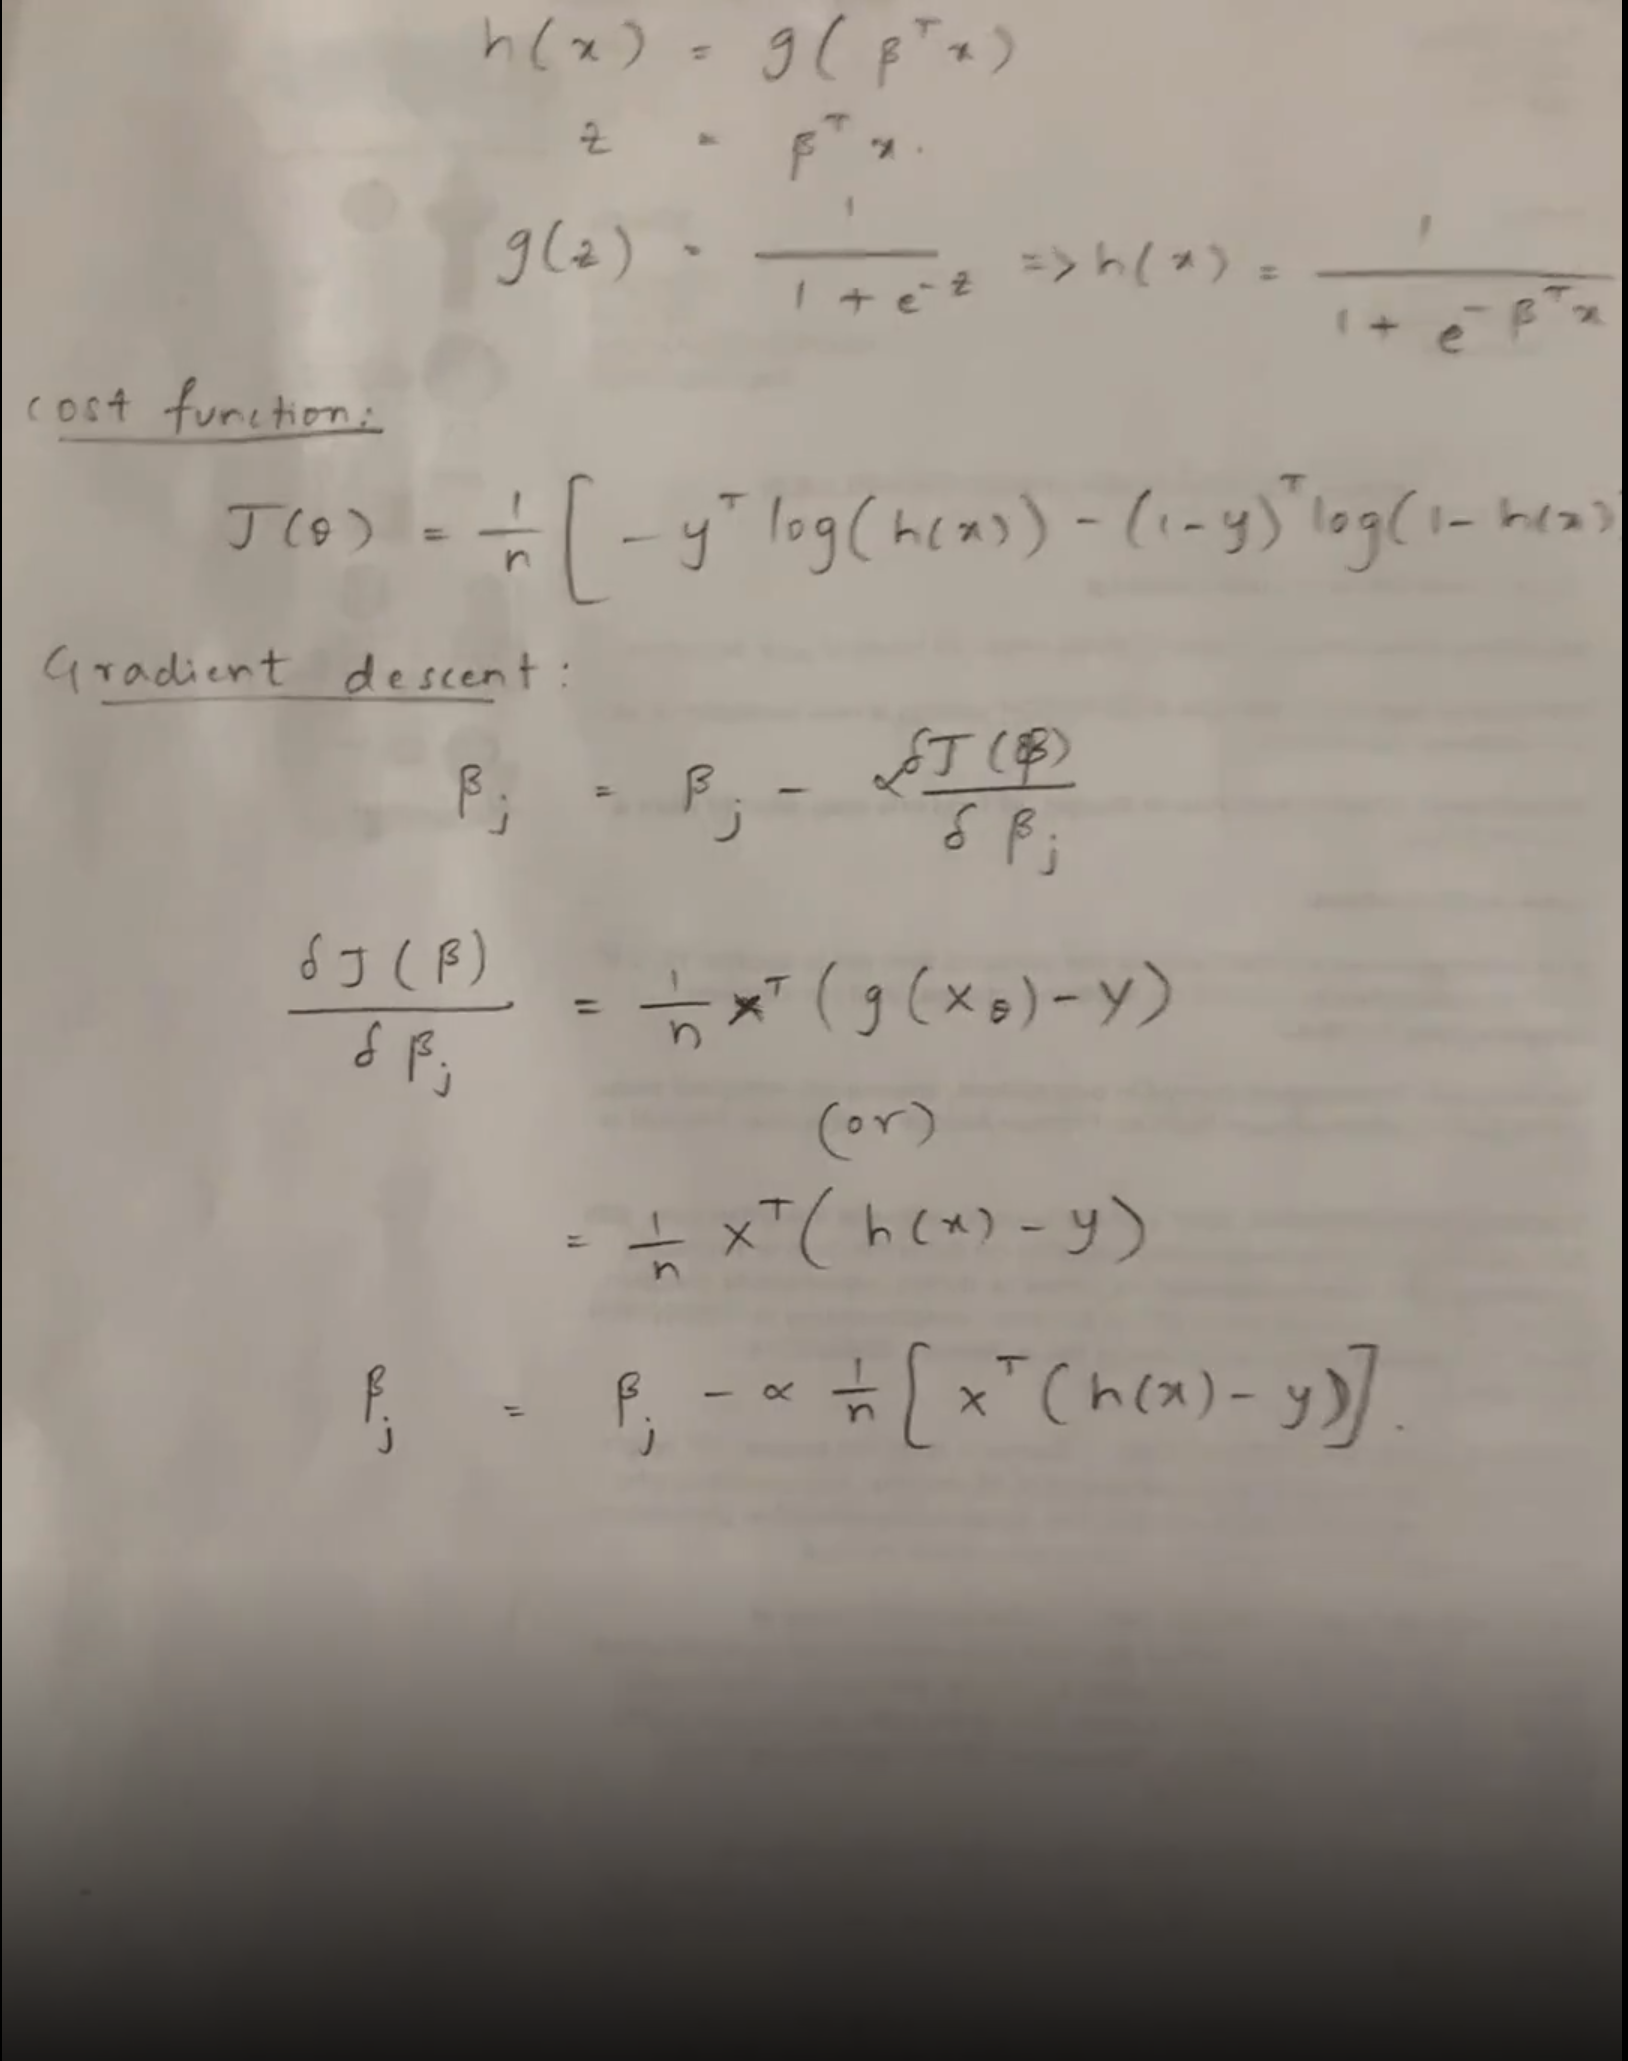 h(x) = g(βᵀx)
z = βᵀx.
g(z) = 1/(1 + e^-z) => h(x) = 1/(1 + e^-βᵀx)
cost function:
J(θ) = 1/n [ - yᵀ log(h(x)) - (1-y)ᵀ log(1- h(x)
Gradient descent:
βj = βj - α δJ(β)/δβj
δJ(β)/δβj = 1/n xᵀ(g(xθ) - y)
(or)
= 1/n xᵀ(h(x) - y)
βj = βj - α 1/n [xᵀ(h(x) - y)].